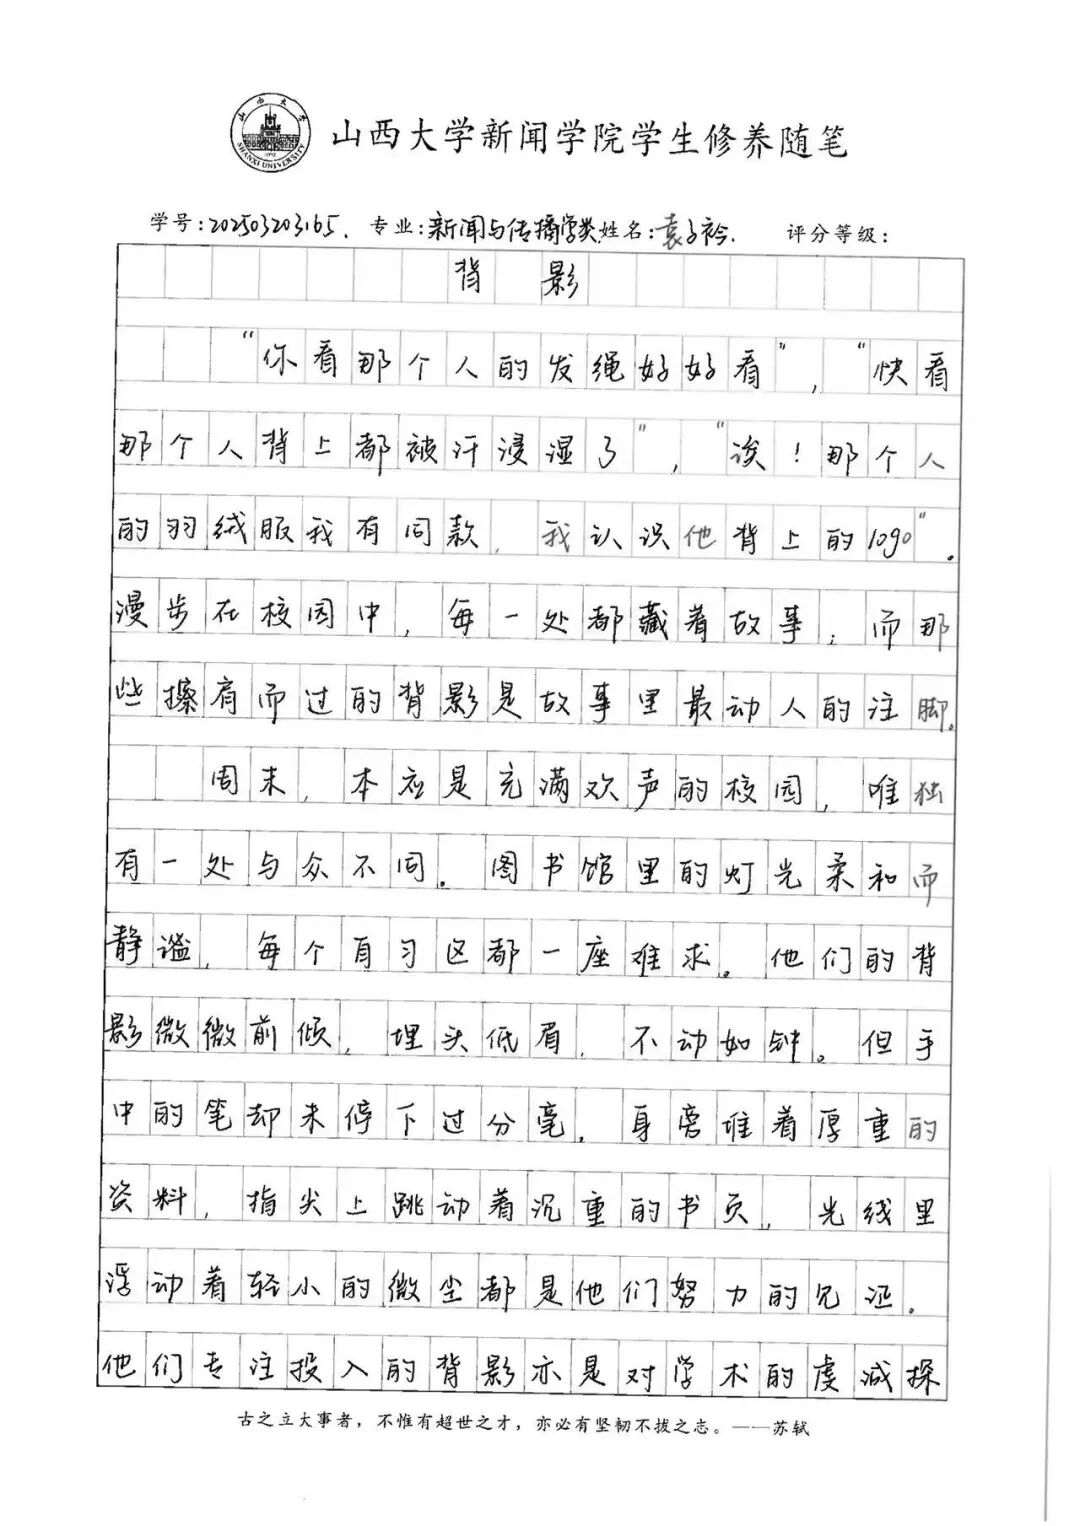 山西大学
SHANXI UNIVERSITY
1902
山西大学新闻学院学生修养随笔
学号:202503203165. 专业:新闻与传播学类 姓名:袁子衿. 评分等级:
背影
“你看那个人的发绳好好看”,“快看
那个人背上都被汗浸湿了”,“诶!那个人
的羽绒服我有同款,我认识他背上的1090”。
漫步在校园中,每一处都藏着故事,而那
些擦肩而过的背影是故事里最动人的注脚。
周末,本应是充满欢声的校园,唯独
有一处与众不同。图书馆里的灯光柔和而
静谧,每个自习区都一座难求。他们的背
影微微前倾,埋头低眉,不动如钟。但手
中的笔却未停下过分毫。身旁堆着厚重的
资料,指尖上跳动着沉重的书页,光线里
浮动着轻小的微尘都是他们努力的见证。
他们专注投入的背影亦是对学术的虔诚探
古之立大事者,不惟有超世之才,亦必有坚韧不拔之志。——苏轼